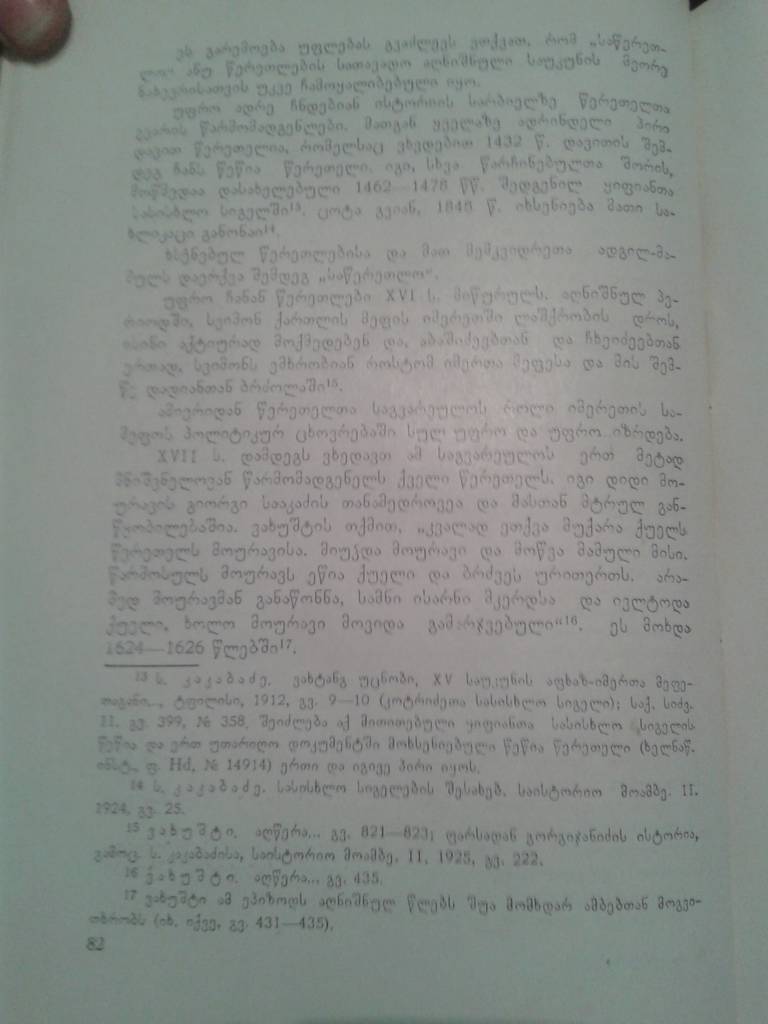 ეს გარემოება უფლებას გვაძლევს ვთქვათ, რომ „საწერეთ-
ლო“ ანუ წერეთლების სათავადო აღნიშნული საუკუნის მეორე
ნახევრისათვის უკვე ჩამოყალიბებული იყო.
უფრო ადრე ჩნდებიან ისტორიის სარბიელზე წერეთელთა
გვარის წარმომადგენლები. მათგან ყველაზე ადრინდელი პირი
დავით წერეთელია, რომელსაც ვხედებით 1432 წ. დავითის შემ-
დეგ ჩანს წეწია წერეთელი. იგი, სხვა წარჩინებულთა შორის,
მოწმედაა დასახელებული 1462—1478 წწ. შედგენილ ყიფიანთა
სასისხლო სიგელში¹³. ცოტა გვიან, 1848 წ. იხსენიება მათი სა-
ხლიკაცი
ხსენებულ წერეთლებისა და მათ მემკვიდრეთა ადგილ-მა-
მულს დაერქვა შემდეგ „საწერეთლო“.
უფრო ჩანან წერეთლები XVI ს. მიწურულს. აღნიშნულ პე-
რიოდში, სვიმონ ქართლის მეფის იმერეთში ლაშქრობის დროს,
ისინი აქტიურად მოქმედებენ და, აბაშიძეებთან და ჩხეიძეებთან
ერთად, სვიმონს ემხრობიან როსტომ იმერთა მეფესა და მის მემ-
წე დადიანთან ბრძოლაში¹⁵.
ამიერიდან წერეთელთა საგვარეულოს როლი იმერეთის სა-
მეფოს პოლიტიკურ ცხოვრებაში სულ უფრო და უფრო იზრდება.
XVII ს. დამდეგს ვხედავთ ამ საგვარეულოს ერთ მეტად
მნიშვნელოვან წარმომადგენელს ქველი წერეთელს. იგი დიდი მო-
ურავის გიორგი სააკაძის თანამედროვეა და მასთან მტრულ გან-
წყობილებაშია. ვახუშტის თქმით, „კვალად ეთქვა მუქარა ქუელს
წერეთელს მოურავისა. მიუჴდა მოურავი და მოწვა მამული მისი.
წარმოსულს მოურავს ეწია ქუელი და ბრძვეს ურთიერთს. არა-
მედ მოურავმან განაწონნა, სამნი ისარნი მკერდსა და ივლტოდა
ქუელი, ხოლო მოურავი მოვიდა გამარჯვებული“¹⁶. ეს მოხდა
1624—1626 წლებში¹⁷.
¹³ ს. კაკაბაძე. ვახტანგ უცნობი, XV საუკუნის აფხაზ-იმერთა მეფე-
თაგანი..., ტფილისი, 1912, გვ. 9—10 (კოტრიძეთა სასისხლო სიგელი); საქ. სიძვ.
II. გვ. 399, № 358. შეიძლება აქ მითითებული ყიფიანთა სასისხლო სიგელის
წეწია და ერთ უთარიღო დოკუმენტში მოხსენიებული წეწია წერეთელი (ხელნაწ.
ინსტ., ფ. Hd, № 14914) ერთი და იგივე პირი იყოს.
¹⁴ ს. კაკაბაძე. სასისხლო სიგელების შესახებ. საისტორიო მოამბე. II.
1924, გვ. 25.
¹⁵ ვახუშტი. აღწერა... გვ. 821—823; ფარსადან გორგიჯანიძის ისტორია,
გამოც. ს. კაკაბაძისა, საისტორიო მოამბე. II, 1925, გვ. 222.
¹⁶ ვახუშტი. აღწერა... გვ. 435.
¹⁷ ვახუშტი ამ ეპიზოდს აღნიშნულ წლებს შუა მომხდარ ამბებთან მოგვი-
თხრობს (იხ. იქვე, გვ. 431—435).
82